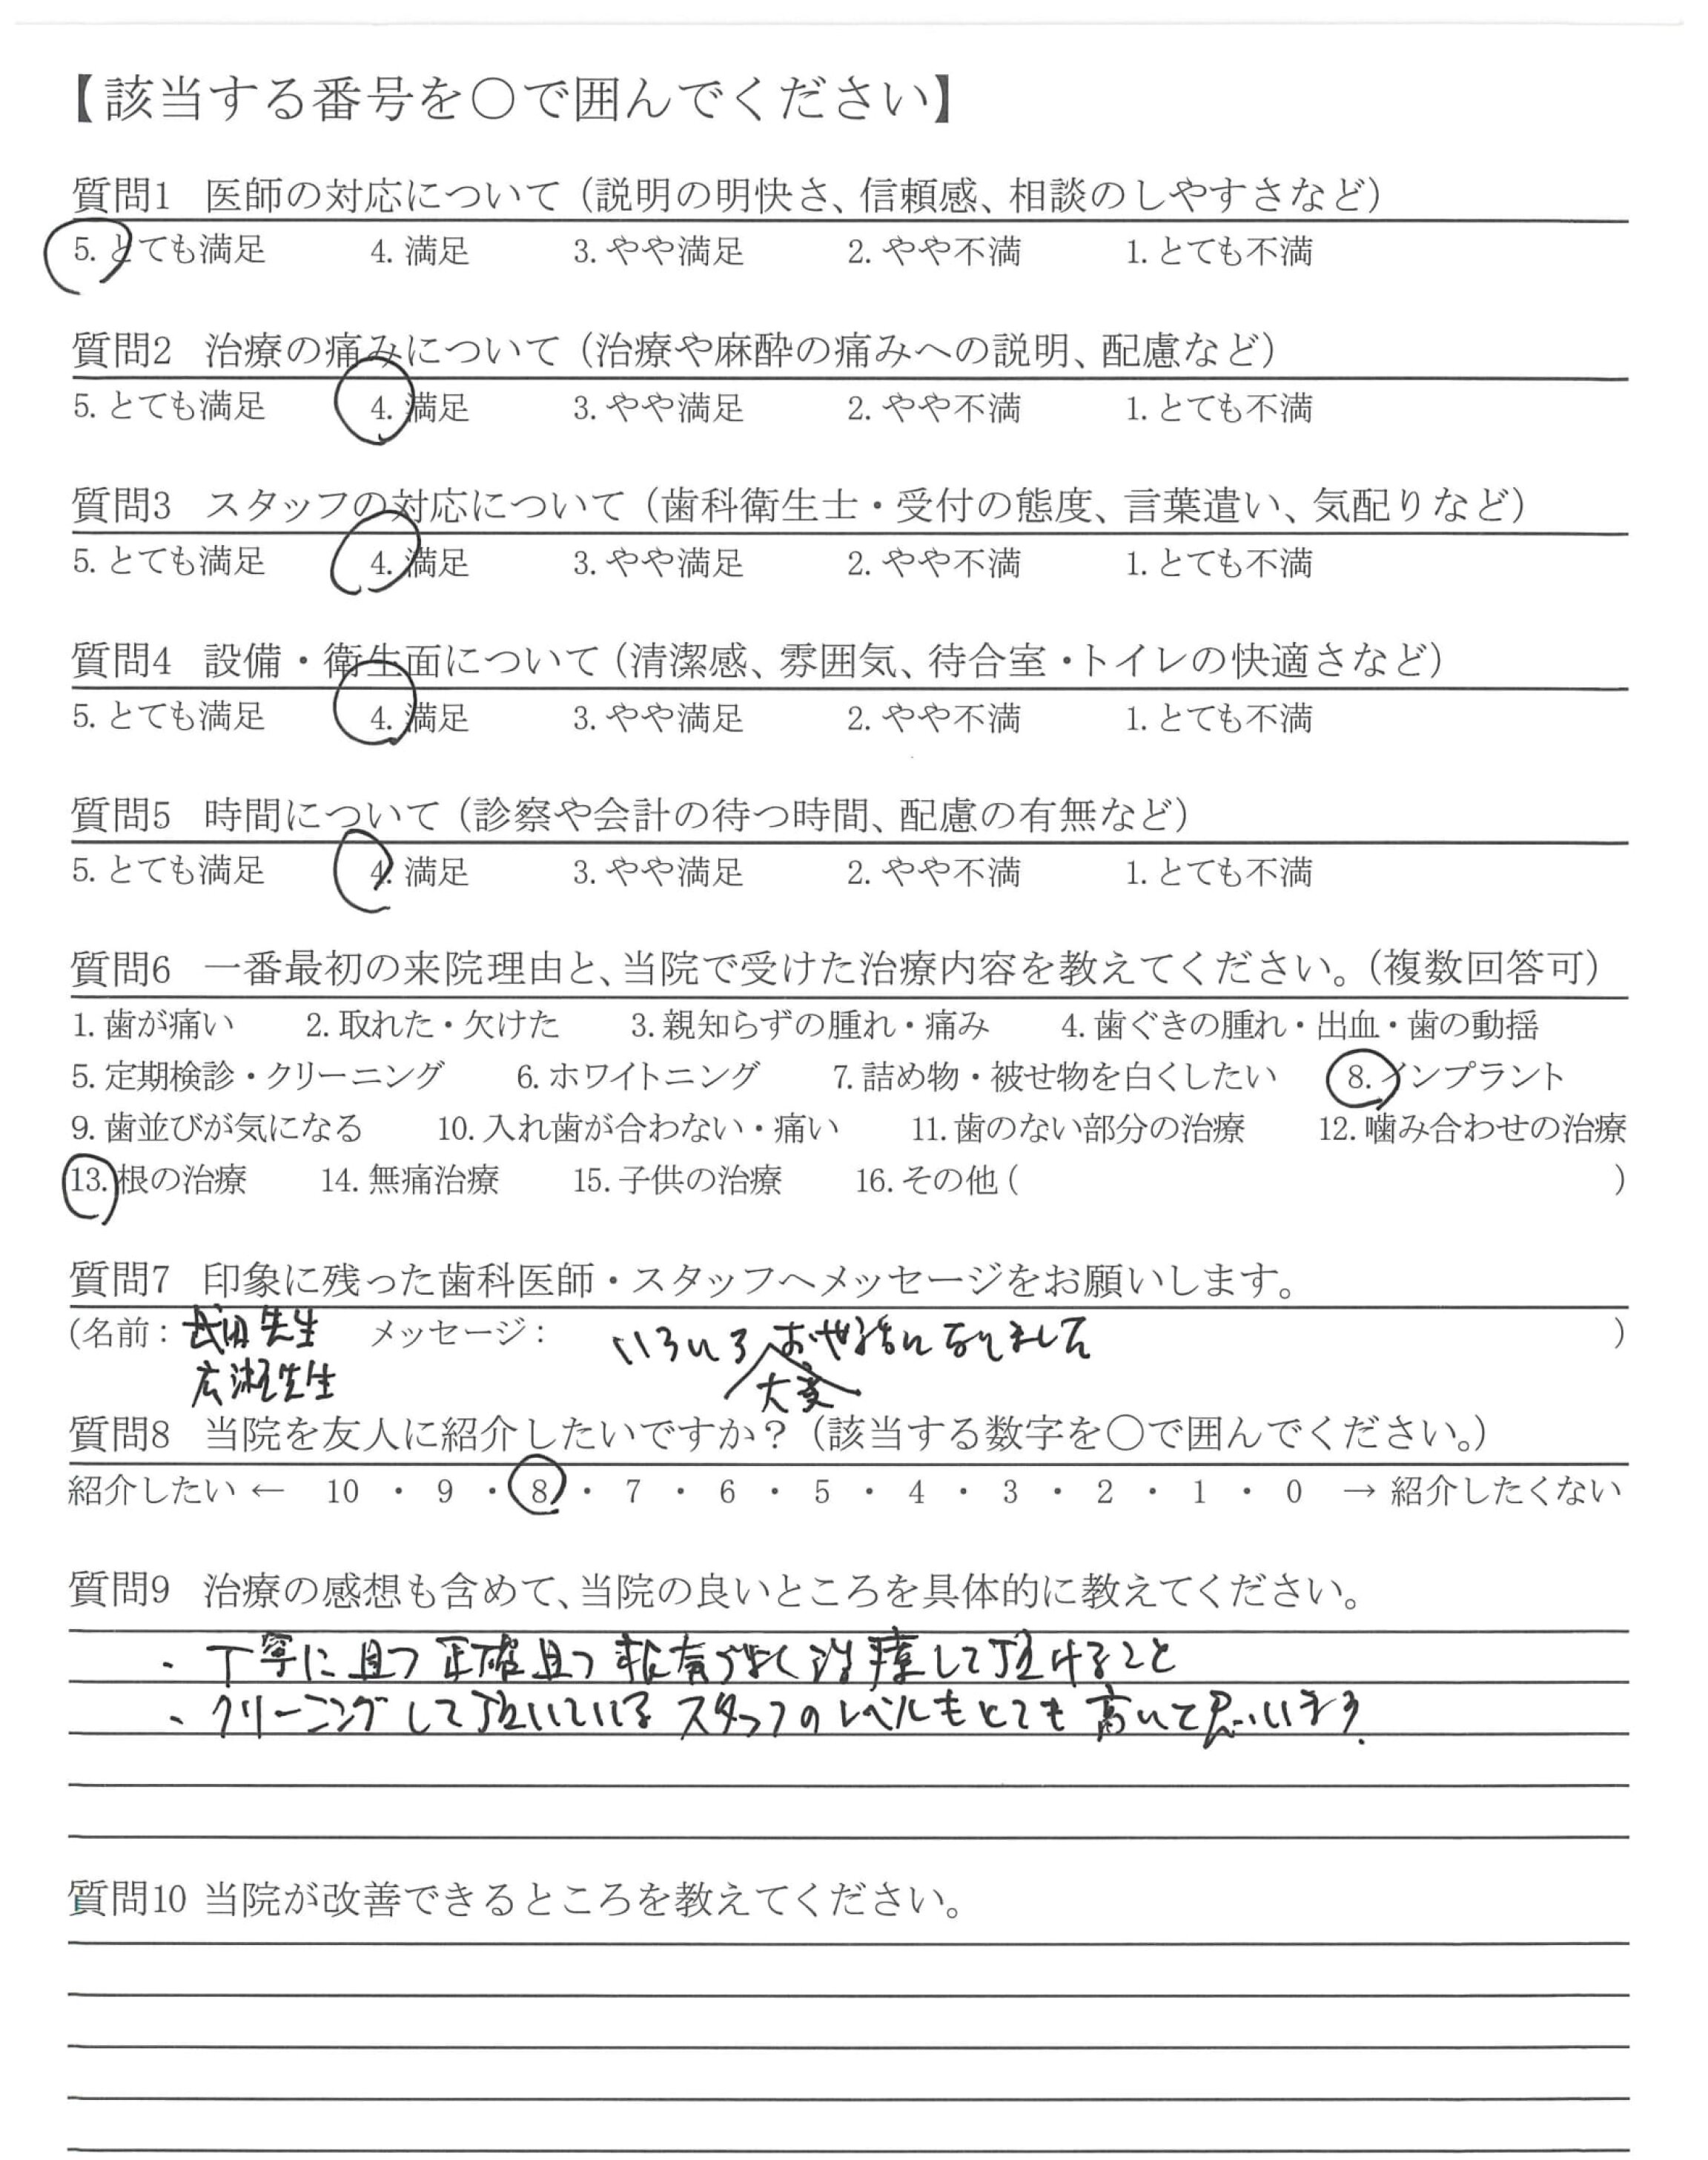 【該当する番号を○で囲んでください】
質問1 医師の対応について（説明の明快さ、信頼感、相談のしやすさなど）
5. とても満足 4. 満足 3. やや満足 2. やや不満 1. とても不満
質問2 治療の痛みについて（治療や麻酔の痛みへの説明、配慮など）
5. とても満足 4. 満足 3. やや満足 2. やや不満 1. とても不満
質問3 スタッフの対応について（歯科衛生士・受付の態度、言葉遣い、気配りなど）
5. とても満足 4. 満足 3. やや満足 2. やや不満 1. とても不満
質問4 設備・衛生面について（清潔感、雰囲気、待合室・トイレの快適さなど）
5. とても満足 4. 満足 3. やや満足 2. やや不満 1. とても不満
質問5 時間について（診察や会計の待つ時間、配慮の有無など）
5. とても満足 4. 満足 3. やや満足 2. やや不満 1. とても不満
質問6 一番最初の来院理由と、当院で受けた治療内容を教えてください。（複数回答可）
1. 歯が痛い 2. 取れた・欠けた 3. 親知らずの腫れ・痛み 4. 歯ぐきの腫れ・出血・歯の動揺
5. 定期検診・クリーニング 6. ホワイトニング 7. 詰め物・被せ物を白くしたい 8. インプラント
9. 歯並びが気になる 10. 入れ歯が合わない・痛い 11. 歯のない部分の治療 12. 噛み合わせの治療
13. 根の治療 14. 無痛治療 15. 子供の治療 16. その他 ( )
質問7 印象に残った歯科医師・スタッフへメッセージをお願いします。
(名前 : 武田先生 メッセージ : いろいろ お世話になりました )
広瀬先生 大変
質問8 当院を友人に紹介したいですか？（該当する数字を○で囲んでください。）
紹介したい ← 10 ・ 9 ・ 8 ・ 7 ・ 6 ・ 5 ・ 4 ・ 3 ・ 2 ・ 1 ・ 0 → 紹介したくない
質問9 治療の感想も含めて、当院の良いところを具体的に教えてください。
・丁寧に且つ正確且つ根気づよく治療して頂けること
・クリーニングして頂いているスタッフのレベルもとても高いと思います.
質問10 当院が改善できるところを教えてください。